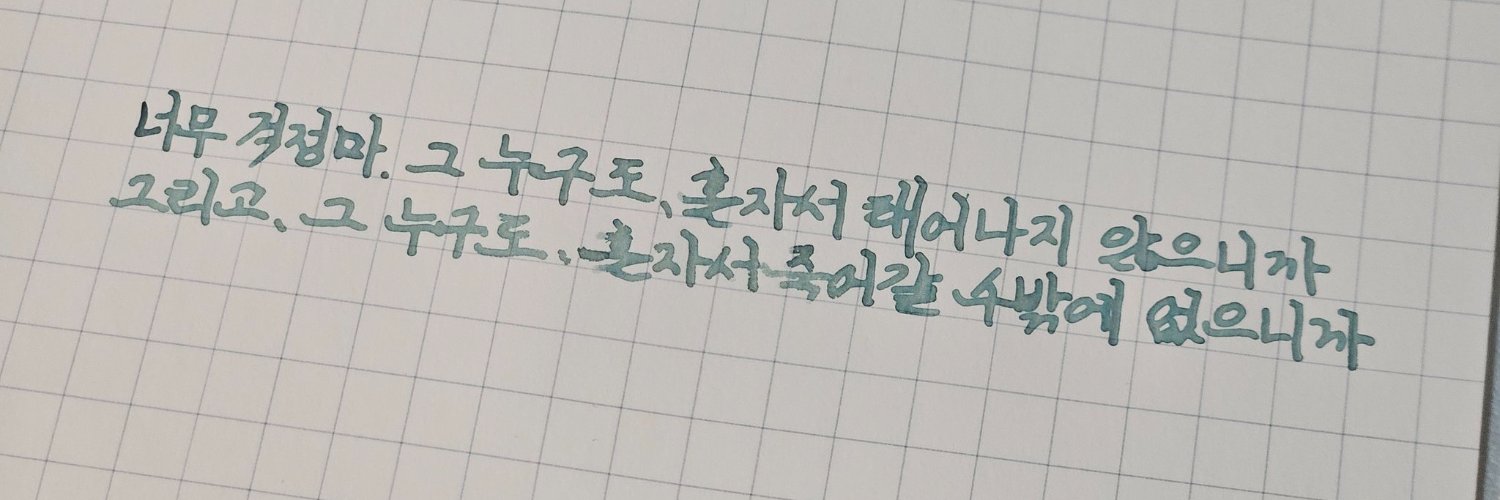 너무 걱정마. 그 누구도, 혼자서 태어나지 않으니까
그리고, 그 누구도, 혼자서 죽어갈 수밖에 없으니까